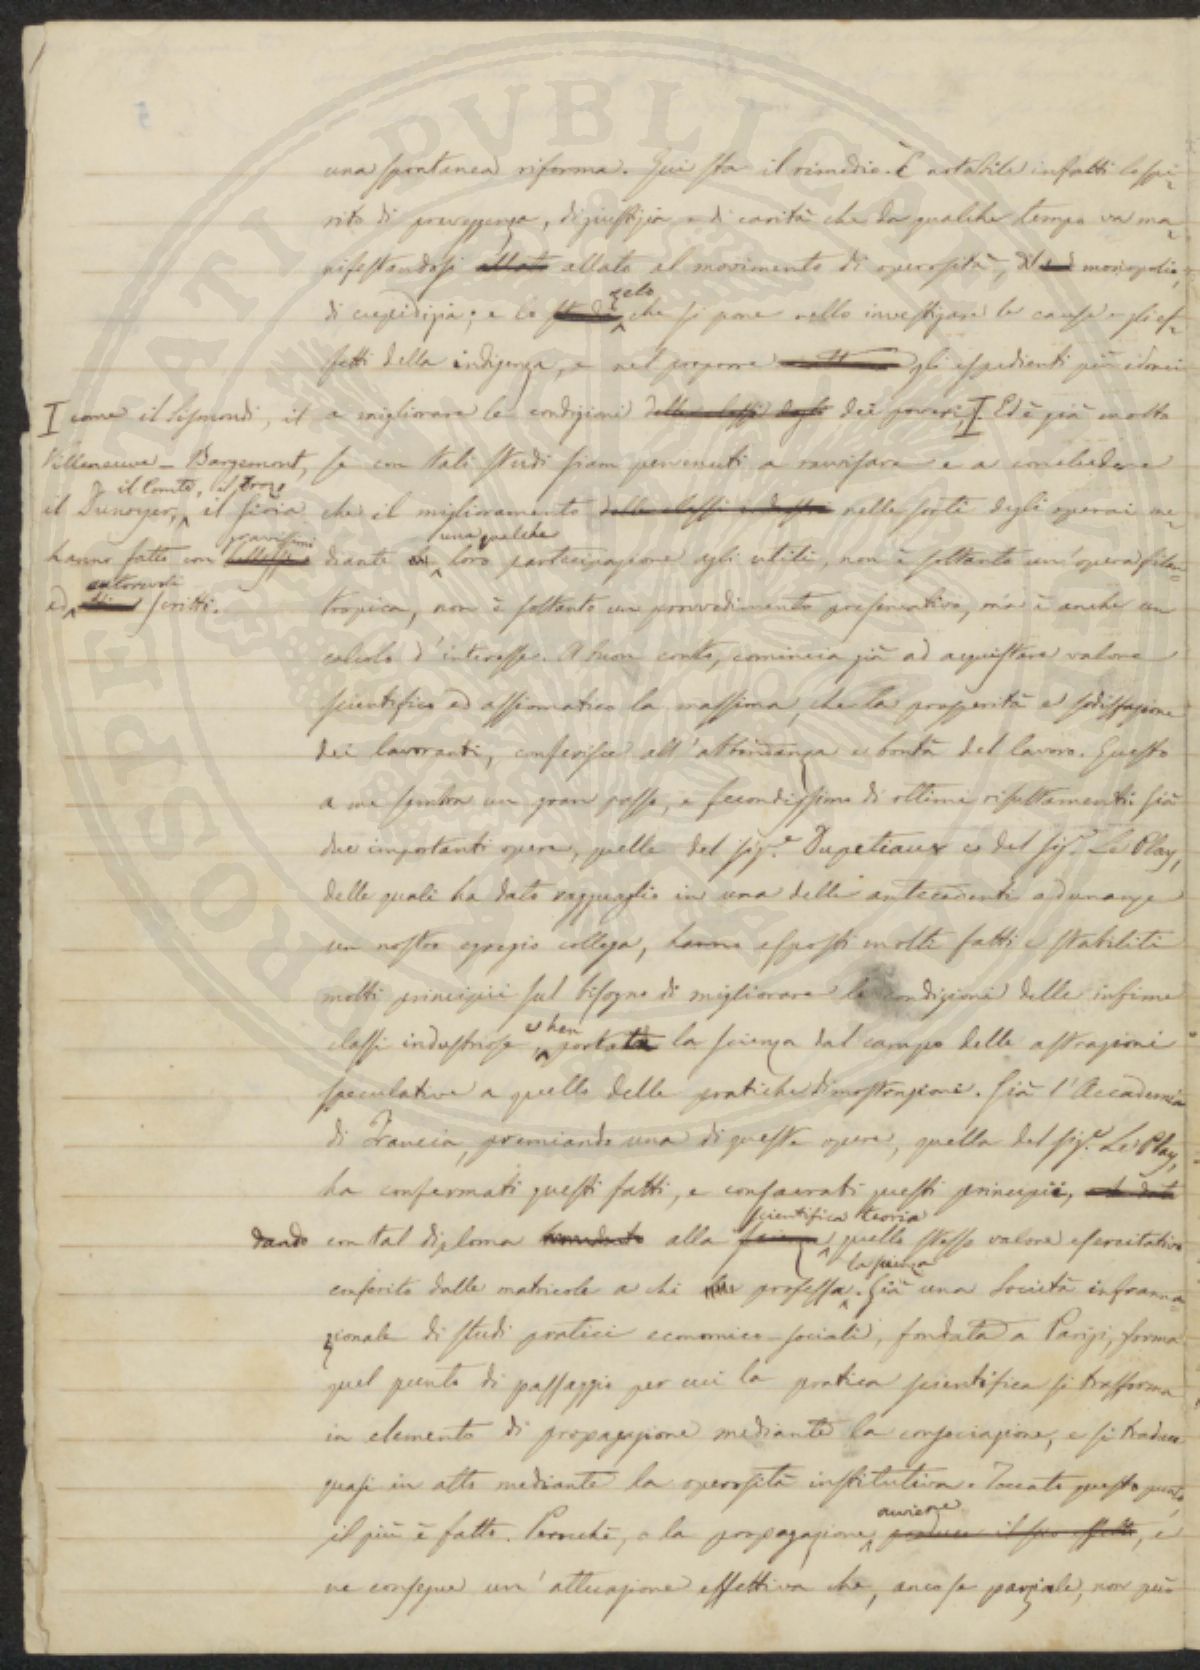 una spontanea riforma. Qui sta il rimedio. È notabile infatti lo spi-
rito di preveggenza, di giustizia e di carità che da qualche tempo va ma-
nifestandosi allato allato al movimento di operosità, di monopolio,
di cupidigia; e lo studio zelo che si pone nello investigare le cause e gli ef-
fetti della indigenza, e nel proporre gli espedienti più idonei
a migliorare le condizioni delle classi degli dei poveri, I Ed è già molto
I come il Sismondi, il
Villeneuve-Bargemont,
il Dunoyer, il Comte, il Gioia
hanno fatto con gravissimi
ed autorevoli scritti.
se con tali studi siam pervenuti a ravvisare e a concludere
che il miglioramento delle classi industri nelle sorti degli operai me-
diante una qualche loro partecipazione agli utili, non è soltanto un'opera filan-
tropica, non è soltanto un provvedimento preservativo, ma è anche un
calcolo d'interesse. A buon conto, comincia già ad acquistare valore
scientifico ed assiomatico la massima, che la prosperità e sodisfazione
dei lavoranti, conferisce all'abbondanza e bontà del lavoro. Questo
a me sembra un gran passo, e fecondissimo di ottimi risultamenti. Già
due importanti opere, quelle del sig.e Dupetiaux e del sig.e Le Play,
delle quali ha dato ragguaglio in una delle antecedenti adunanze
un nostro egregio collega, hanno esposti molti fatti e stabiliti
molti principii sul bisogno di migliorare le condizioni delle infime
classi industriose, e han portata la scienza dal campo delle astrazioni
speculative a quello delle pratiche dimostrazioni. Già l'Accademia
di Francia, premiando una di queste opere, quella del sig.e Le Play,
ha confermati questi fatti, e consacrati questi principii, ed dato
dando con tal diploma alla scienza scientifica teoria quello stesso valore esercitativo
conferito dalle matricole a chi professa la scienza. Già una Società internа-
zionale di studi pratici economico-sociali, fondata a Parigi, forma
quel punto di passaggio per cui la pratica scientifica si trasforma
in elemento di propagazione mediante la consociazione, e si traduce
quasi in atto mediante la operosità institutiva. Toccato questo punto,
il più è fatto. Perocchè, o la propagazione avviene produce il suo effetto, e
ne consegue un'attuazione effettiva che, anco se parziale, non può